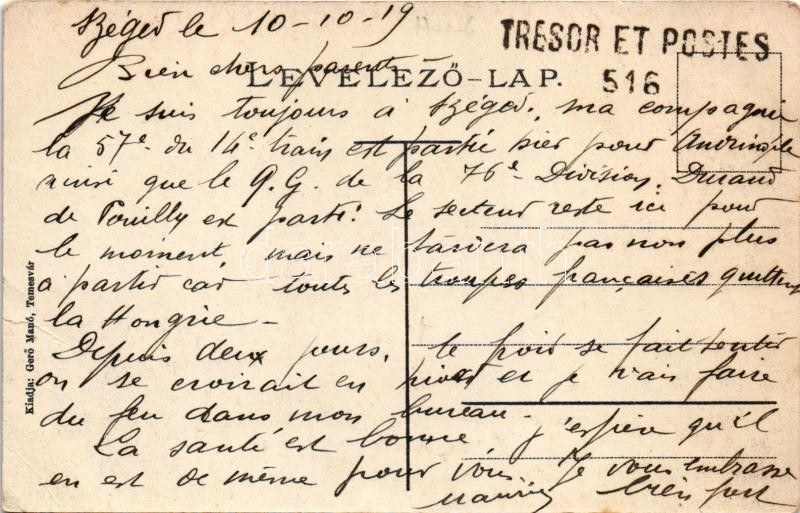 Széged le 10-10-19
TRESOR ET POSTES
516
Bien chers parents
LEVELEZŐ-LAP.
Je suis toujours à Széged, ma compagnie
la 57e du 14e train est partie hier pour Andrinople
ainsi que le Q.G. de la 76e Division, Durand
de Pouilly est parti. Le secteur reste ici pour
le moment, mais ne tardera pas non plus
à partir car toutes les troupes françaises quittent
la Hongrie -
Depuis deux jours, le froid se fait sentir
on se croirait en hiver et je vais faire
du feu dans mon bureau -
La santé est bonne j'espère qu'il
en est de même pour vous. Je vous embrasse
bien fort
Kiadja: Gerő Manó, Temesvár